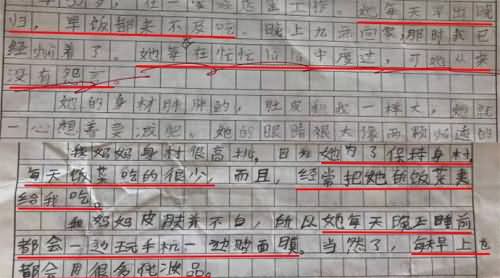 在一家
工作。她每天早出晚
归,早饭都来不及吃。晚上九点回家,那时我已
经睡着了。她每天在忙忙
中度过,可她从来
没有怨言
她的身材胖胖的,肚皮和我一样大,她
一心想着要减肥。她的眼睛很大像两颗
我妈妈身材很高挑。因为她为了保持身材,
每天饭菜吃的很少,而且,经常把她的饭菜夹
给我吃。
我妈妈皮肤并不白,所以她每天晚上睡前
都会一边玩手机一边贴面膜。当然了,每早上也
都会用很多化妆品。